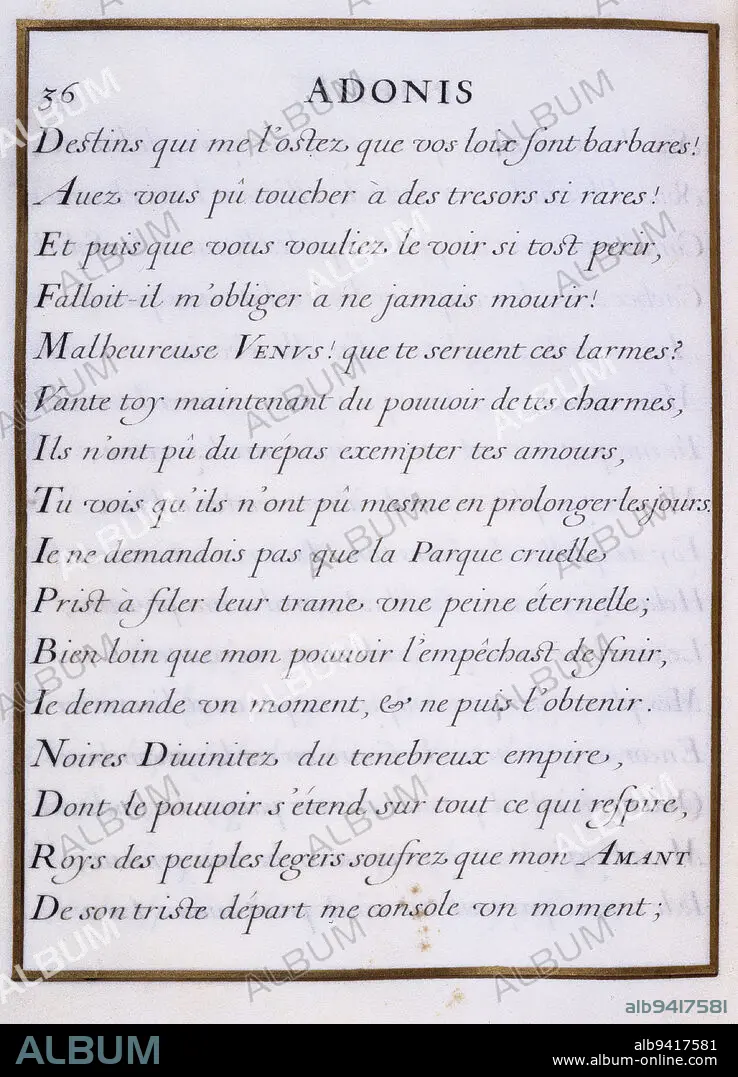 36 ADONIS
Destins qui me l'ostez, que vos loix sont barbares!
Auez vous pû toucher à des tresors si rares!
Et puis que vous vouliez le voir si tost perir,
Falloit-il m'obliger à ne jamais mourir!
Malheureuse VENVS! que te seruent ces larmes?
Vante toy maintenant du pouuoir de tes charmes,
Ils n'ont pû du trépas exempter tes amours,
Tu vois qu'ils n'ont pû mesme en prolonger les jours.
Ie ne demandois pas que la Parque cruelle
Prist à filer leur trame vne peine éternelle;
Bien loin que mon pouuoir l'empêchast de finir,
Ie demande vn moment, & ne puis l'obtenir.
Noires Diuinitez du tenebreux empire,
Dont le pouuoir s'étend sur tout ce qui respire,
Roys des peuples legers soufrez que mon AMANT
De son triste départ me console vn moment;
alb9417581
ALBUM
alb9417581
www.album-online.com